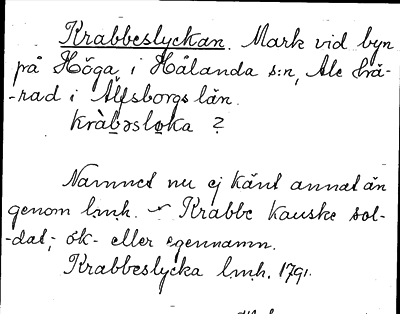 Krabbeslyckan. Mark vid byn
på Höga i Hålanda s:n, Ale hä-
-rad i Älfsborgs län.
kràb̲əslo̲ka ?
Namnet nu ej känt annat än
genom lmh. Krabbe kanske sol-
-dat-, ök- eller egennamn.
Krabbeslycka lmh. 1791.